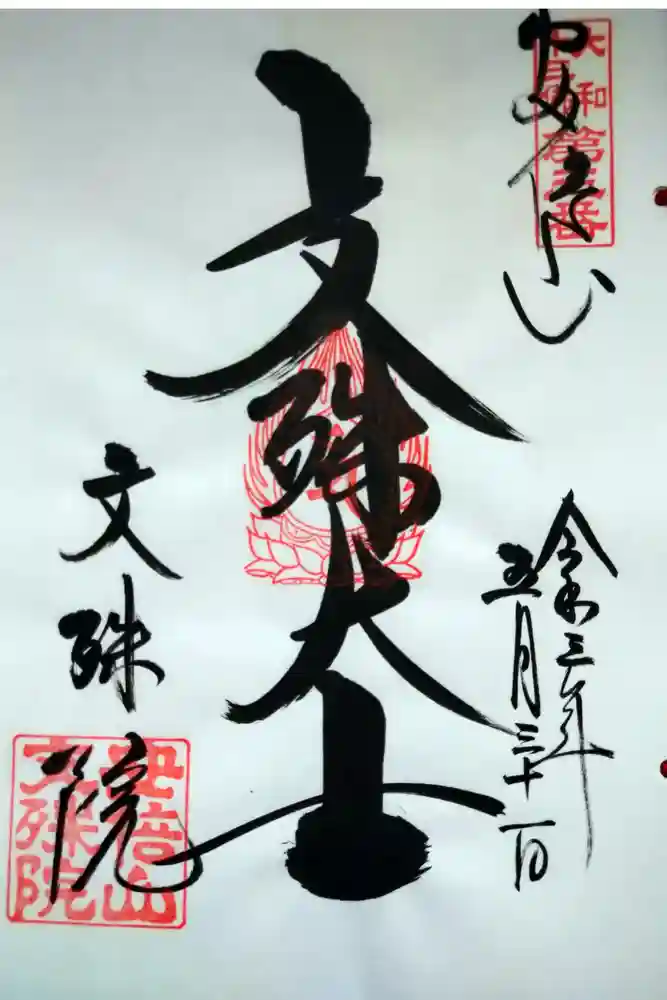 大和十三佛
第三番
安倍山
令和三年
五月三十一日
文殊大士
文殊院
安倍山
文殊院